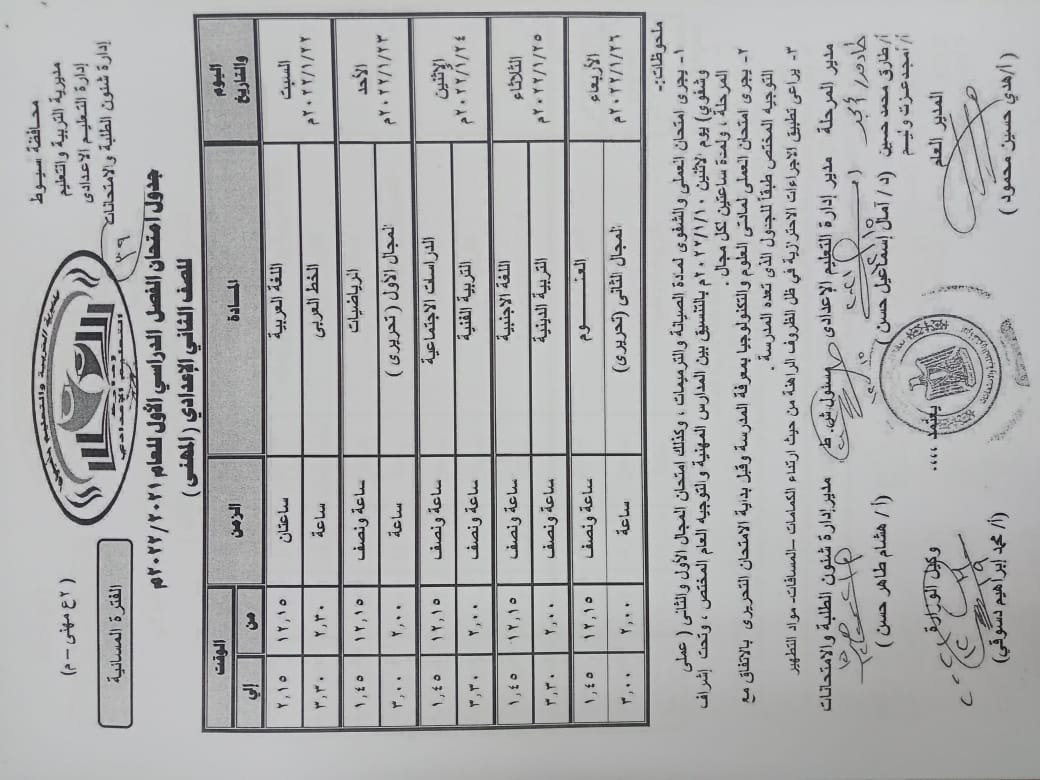 محافظة أسيوط
مديرية التربية والتعليم
إدارة التعليم الاعدادى
إدارة شئون الطلبة والامتحانات
٣٩
(٢ع مهنى – م)
الفترة المسائية
جدول امتحان الفصل الدراسي الأول للعام ٢٠٢٢/٢٠٢١م
للصف الثاني الإعدادي (المهنى)
اليوم والتاريخ المــادة الزمن الوقت
من إلي
السبت ٢٠٢٢/١/٢٢م اللغة العربية ساعتان ١٢,١٥ ٢,١٥
الخط العربى ساعة ٢,٣٠ ٣,٣٠
الأحد ٢٠٢٢/١/٢٣م الرياضيات ساعة ونصف ١٢,١٥ ١,٤٥
المجال الأول (تحريرى) ساعة ٢,٠٠ ٣,٠٠
الإثنين ٢٠٢٢/١/٢٤م الدراسات الاجتماعية ساعة ونصف ١٢,١٥ ١,٤٥
التربية الفنية ساعة ونصف ٢,٠٠ ٣,٣٠
الثلاثاء ٢٠٢٢/١/٢٥م اللغة الاجنبية ساعة ونصف ١٢,١٥ ١,٤٥
التربية الدينية ساعة ونصف ٢,٠٠ ٣,٣٠
الأربعاء ٢٠٢٢/١/٢٦م العلــــوم ساعة ونصف ١٢,١٥ ١,٤٥
المجال الثانى (تحريرى) ساعة ٢,٠٠ ٣,٠٠
ملحوظات:-
١- يجرى امتحان العملى والشفوى لمادة الصيانة والترميمات ، وكذلك امتحان المجال الأول والثانى (عملى
وشفوي) يوم الاثنين ٢٠٢٢/١/١٠م بالتنسيق بين المدارس المهنية والتوجيه العام المختص ، وتحت إشراف
المرحلة ، ولمدة ساعتين لكل مجال.
٢- يجرى امتحان العملى لمادتى العلوم والتكنولوجيا بمعرفة المدرسة وقبل بداية الامتحان التحريرى بالاتفاق مع
التوجيه المختص طبقاً للجدول الذى تعده المدرسة .
٣- يراعى تطبيق الاجراءات الاحترازية فى ظل الظروف الراهنة من حيث ارتداء الكمامات –المسافات- مواد التطهير
مدير المرحلة مدير إدارة التعليم الإعدادى مسئول ش. ط مدير إدارة شئون الطلبة والامتحانات
أ/طارق محمد حسين (د / آمال إسماعيل حسن) (أ / هشام طاهر حسن)
أ/أمجد عزت وليم
يعتمد ،،،،
المدير العام وكيل الوزارة
(أ/هدي حسين محمود) (أ/ محمد إبراهيم دسوقي)